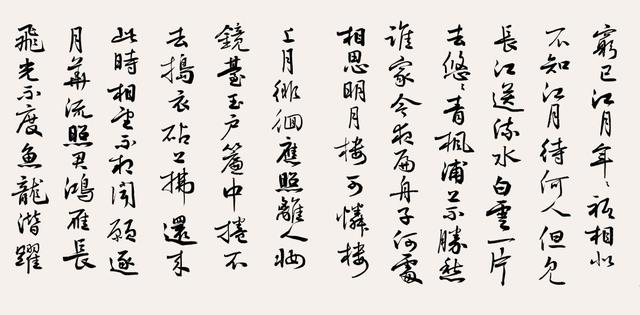 窮已江月年〻祗相似
不知江月待何人但見
長江送流水白雲一片
去悠〻青楓浦上不勝愁
誰家今夜扁舟子何處
相思明月樓可憐樓
上月徘徊應照離人妝
鏡臺玉戶簾中捲不
去搗衣砧上拂還來
此時相望不相聞願逐
月華流照君鴻雁長
飛光不度魚龍潛躍